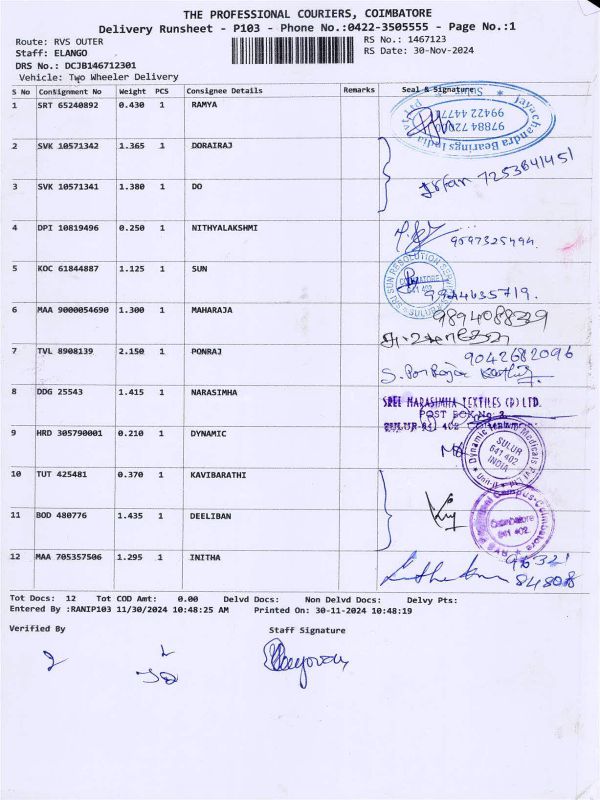 THE PROFESSIONAL COURIERS, COIMBATORE
Delivery Runsheet - P103 - Phone No.:0422-3505555 - Page No.:1
Route: RVS OUTER RS No.: 1467123
Staff: ELANGO RS Date: 30-Nov-2024
DRS No.: DCJB146712301
Vehicle: Two Wheeler Delivery
S No Consignment No Weight PCS Consignee Details Remarks Seal & Signature
1 SRT 65240892 0.430 1 RAMYA
Jayachandra Bearings India
99422 44777
2 SVK 10571342 1.365 1 DORAIRAJ
Irfan 7253841451
3 SVK 10571341 1.380 1 DO
4 DPI 10819496 0.250 1 NITHYALAKSHMI
9597325494.
5 KOC 61844887 1.125 1 SUN
SRI SUN RESOLUTION
COIMBATORE
641 402
SULUR
6 MAA 9000054690 1.300 1 MAHARAJA
9894088329
7 TVL 8908139 2.150 1 PONRAJ
9042682096
8 DDG 25543 1.415 1 NARASIMHA
SREE NARASIMHA TEXTILES (P) LTD.
POST BOX No. 3
SULUR-641 402
9 HRD 305790001 0.210 1 DYNAMIC
Dynamic Medicals Pvt Ltd
Unit-II
SULUR
641 402
INDIA
10 TUT 425481 0.370 1 KAVIBARATHI
11 BOD 480776 1.435 1 DEELIBAN
Coimbatore
641 402
12 MAA 705357506 1.295 1 INITHA
96321
84808
Tot Docs: 12 Tot COD Amt: 0.00 Delvd Docs: Non Delvd Docs: Delvy Pts:
Entered By :RANIP103 11/30/2024 10:48:25 AM Printed On: 30-11-2024 10:48:19
Verified By Staff Signature